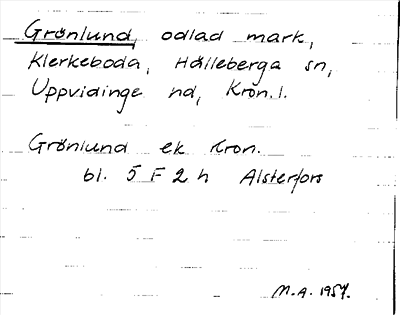 Grönlund, odlad mark,
Klerkeboda, Hälleberga sn,
Uppvidinge hd, Kron.l.
Grönlund ek Kron.
bl. 5 F 2 h Alsterfors
M.A. 1957.